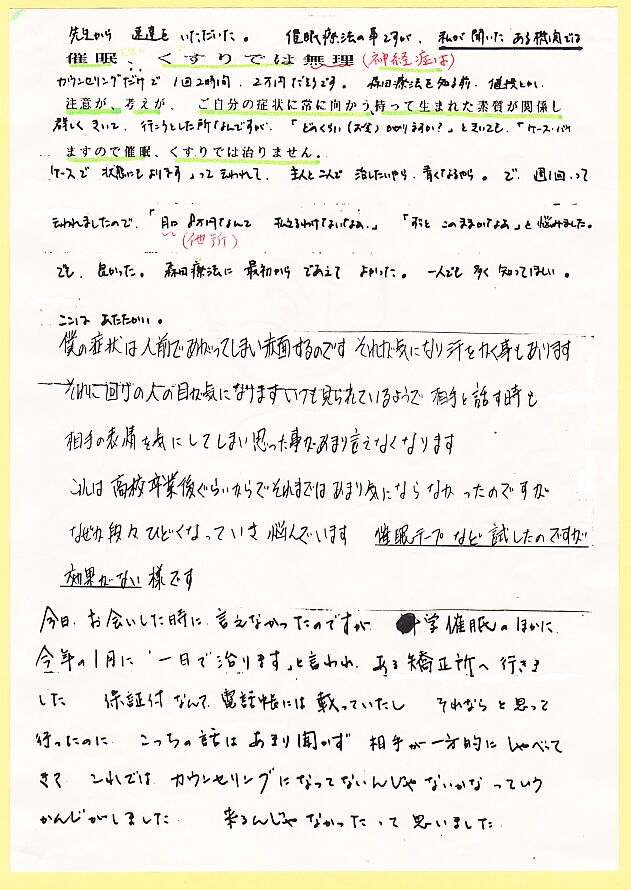 先生から 速達を いただいた。 催眠療法の事ですが、私が聞いた ある機関でも
催眠、くすりでは無理(神経症は)
カウンセリングだけで 1回2時間、2万円だそうです。 森田療法を知る前、値段とか、
注意が、考えが、ご自分の症状に常に向かう、持って生まれた素質が関係し
詳しく きいて、行こうとした所なんですが、「どのくらい(お金)かかりますか?」ときいても、「ケース・バイ
ますので催眠、くすりでは治りません。
ケースで 状態にもよります」って言われて、主人と二人で 治したいやら、青くなるやら。で、週1回って
言われましたので、「月に8万円なんて 払えるわけないなあ。」「ずっと このままかなあ」と悩みました。
(他所)
でも、良かった。森田療法に 最初から であえて よかった。一人でも 多く 知ってほしい。
ここは あたたかい。
僕の症状は人前であがってしまい赤面するのです それが気になり汗をかく事もあります
それに回りの人の目が気になります いつも見られているようで 相手と話す時も
相手の表情を気にしてしまい思った事があまり言えなくなります
これは高校卒業後ぐらいからでそれまではあまり気にならなかったのですが
なぜか段々ひどくなっていき悩んでいます 催眠テープなど試したのですが
効果がない様です
今日、お会いした時に、言えなかったのですが 学催眠のほかに、
今年の1月に「一日で治ります」と言われ、ある矯正所へ行きま
した 保証付なんて、電話帳には載っていたし それならと思って
行ったのに、こっちの話は あまり聞かず 相手が一方的に しゃべって
きて、これでは カウンセリングになってないんじゃないかな っていう
かんじがしました 来るんじゃなかったって思いました